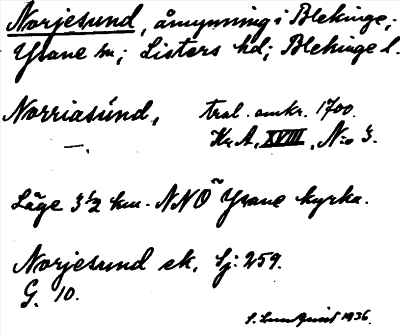 Norjesund, åmynning i Blekinge;
Ysane sn; Listers hd; Blekinge l.
Norriasúnd, tral. omkr. 1700.
—. Kr. A. XVIII, N:o 3.
Läge 3 ½ km. NNÖ Ysane kyrka.
Norjesund ek. Sj: 259.
G. 10.
S. Lundquist 1936.